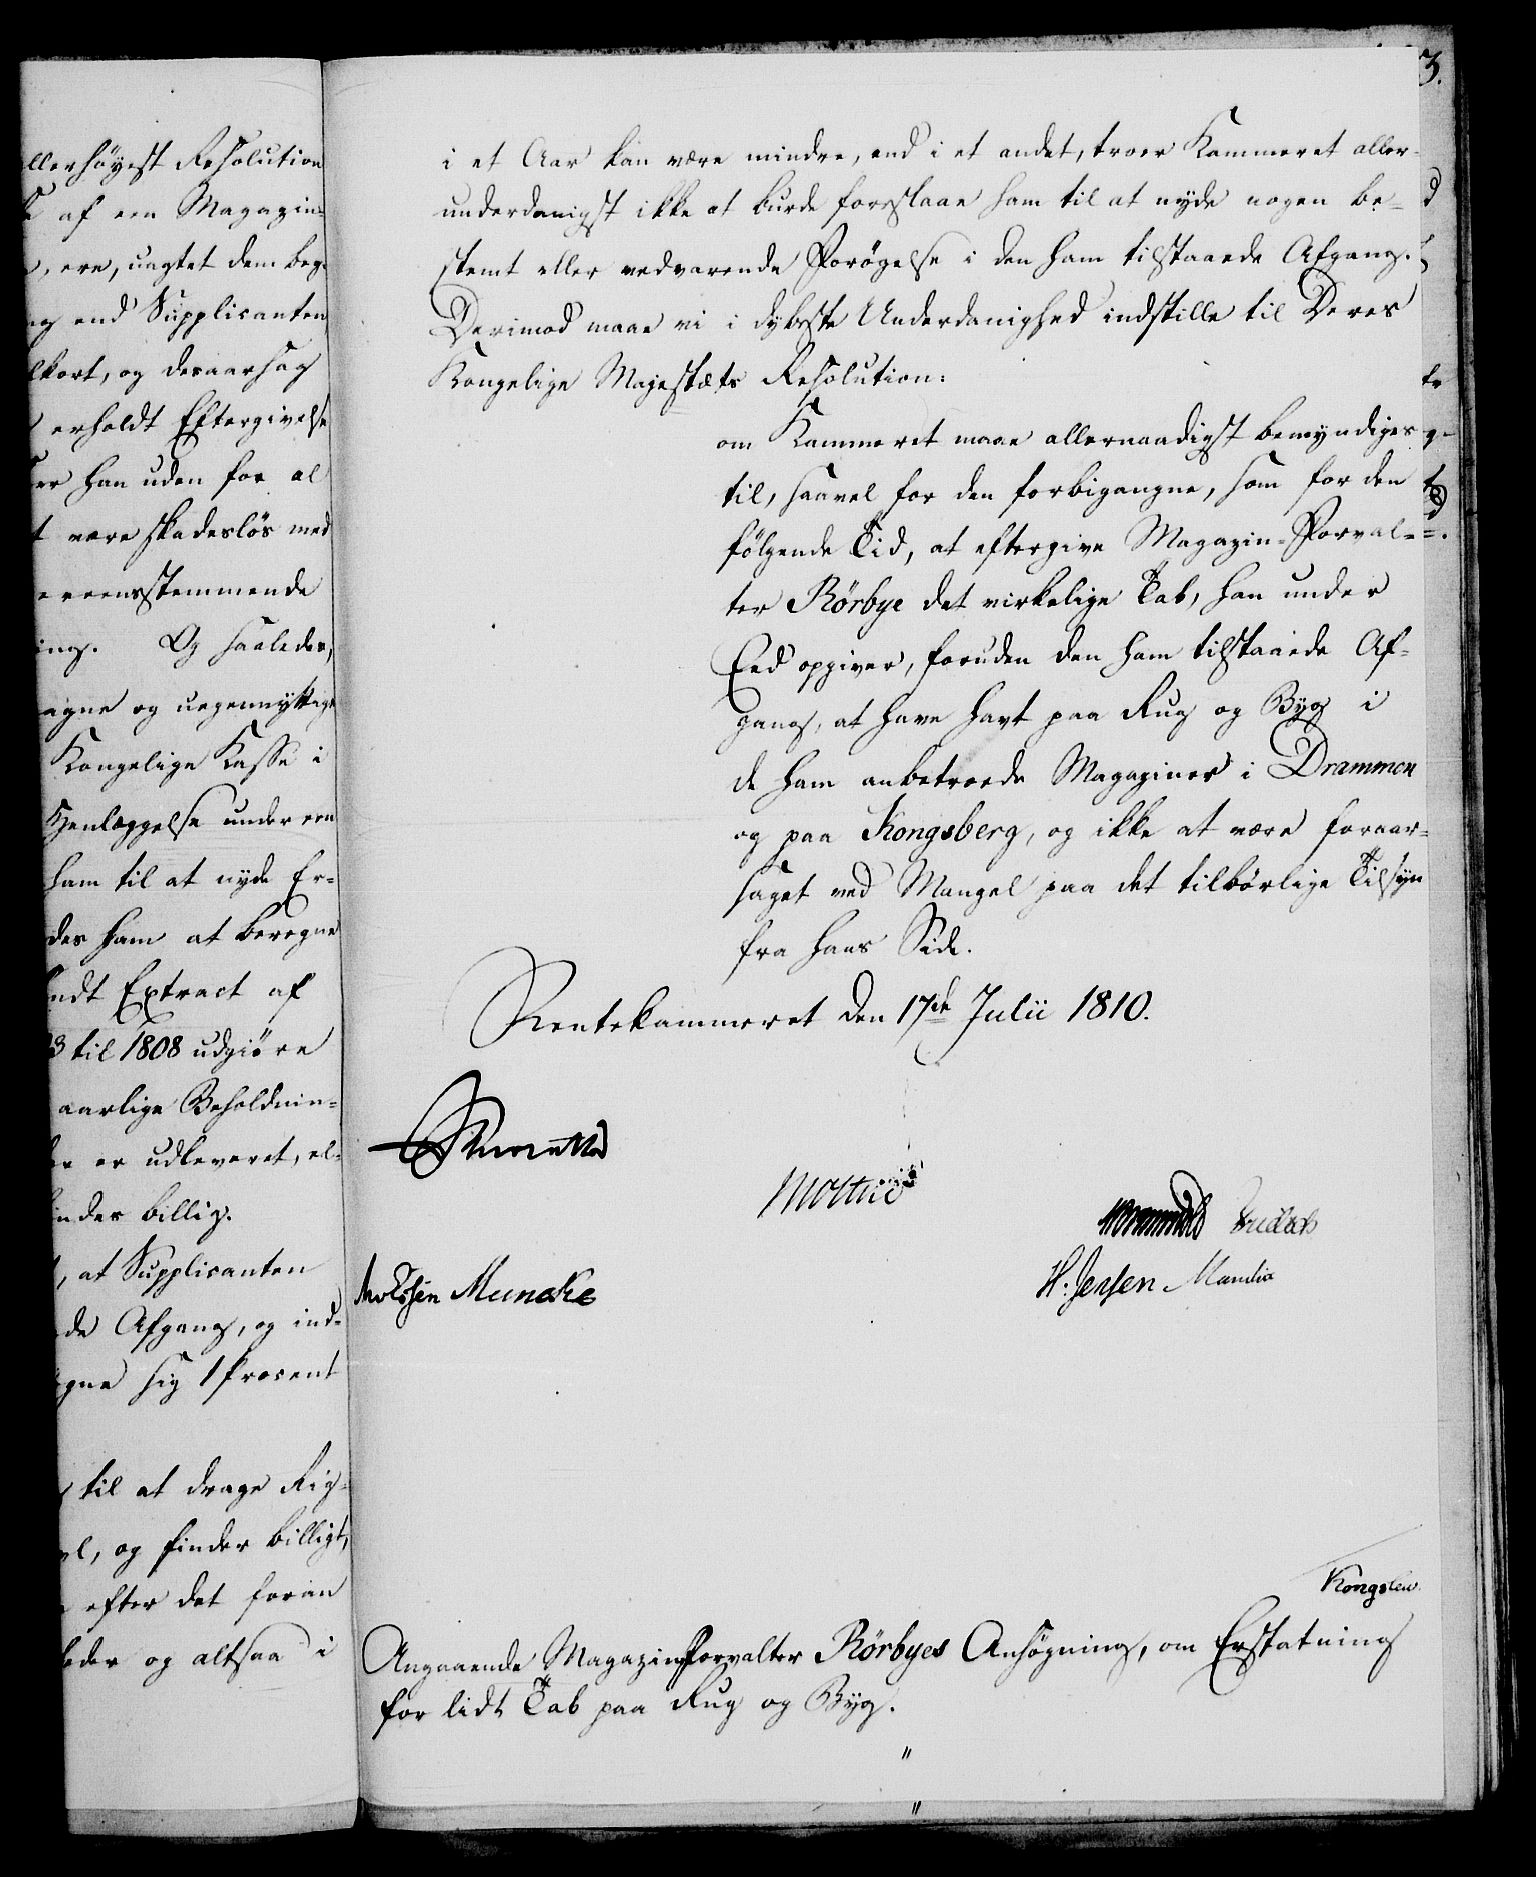 llerhöyest Resolution
af een Magazin-
, ere, uagtet dem beg-
end Supplicanten
lkort, og desaarsag
erholdt Eftergivelse
er han uden for al
t være skadeslös med
ereensstemmende
ing. Og saaledes,
agne og uegennyttigt
Kongelige Kasse i
Henlæggelse under een
ham til at nyde Er-
des ham at beregne
ndt Extract af
3 til 1808 udgiöre
aarlige Beholdnin-
er udleveret, el-
indes billig.
, at Supplicanten
de Afgang, og ind-
gne sig 1 Procent
til at drage Rig-
el, og finder billigt,
efter det foran
leder og altsaa i
3.
i et Aar kan være mindre, end i et andet, troer Kammeret aller-
underdanigst ikke at burde foreslaae ham til at nyde nogen be-
stemt eller vedvarende Forögelse i den ham tilstaaede Afgang.
Derimod maae vi i dybeste Underdanighed indstille til Deres
Kongelige Majestæts Resolution:
om Kammeret maae allernaadigst bemyndiges
til, saavel for den forbigangne, som for den
fölgende Tid, at eftergive Magazin-Forval-
ter Rörbye det virkelige Tab, han under
Eed opgiver, foruden den ham tilstaaede Af-
gang, at have havt paa Rug og Byg i
de ham anbetroede Magaziner i Drammen
og paa Kongsberg, og ikke at være foraar-
saget ved Mangel paa det tilbörlige Tilsyn
fra hans Side.
Rentekammeret den 17de Julii 1810.
H. Jensen
Kongslew
Angaaende Magazinforvalter Rörbyes Ansögning, om Erstatning
for lidt Tab paa Rug og Byg.